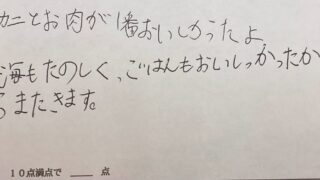 カニとお肉が1番おいしかったよ
海もたのしく、ごはんもおいしっかたか
らまたきます。
10点満点で ____ 点